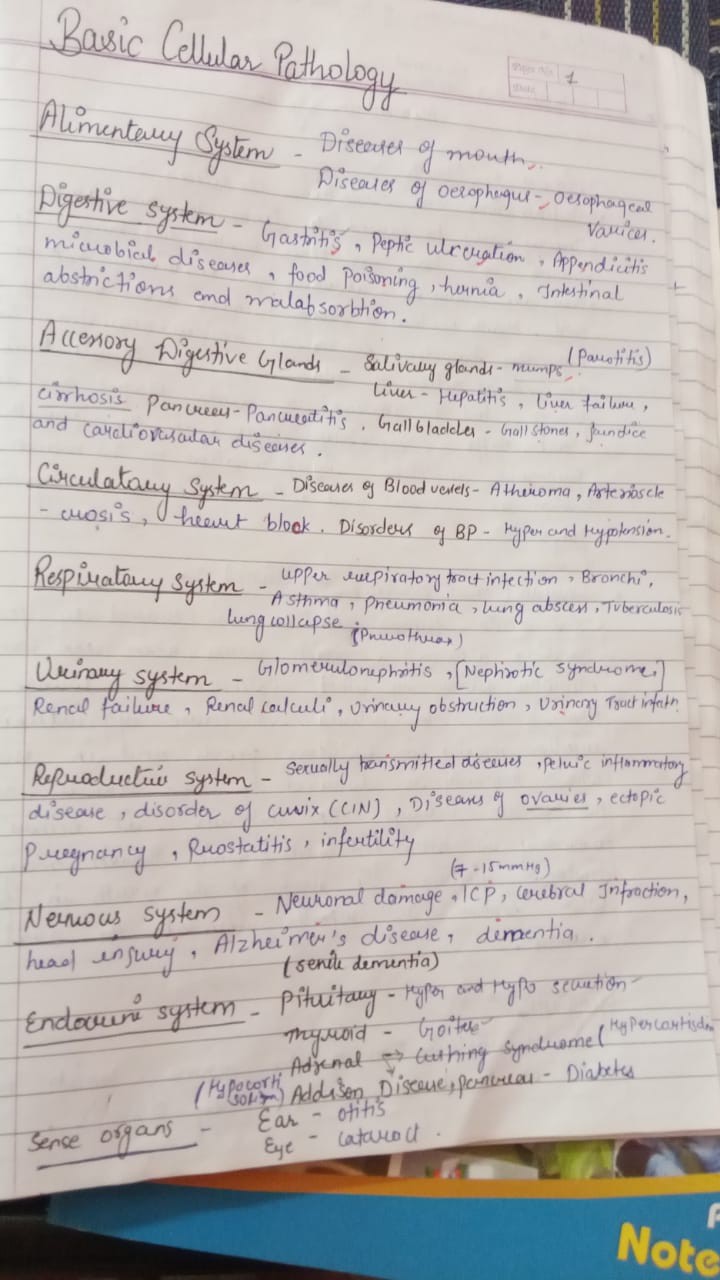 Basic Cellular Pathology
Page No. 1
Date
Alimentary System - Diseases of mouth.
Diseases of oesophagus - oesophageal
varices.
Digestive system - Gastritis, Peptic ulceration, Appendicitis
microbial diseases, food poisoning, hernia, Intestinal
abstrictions and malabsorbtion.
Accessory Digestive Glands - Salivary glands - mumps (Parotitis)
Liver - Hepatitis, liver failure,
cirrhosis Pancreas - Pancreatitis. Gallbladder - Gall stones, Jaundice
and cardiovascular diseases.
Circulatory System - Diseases of Blood vessels - Atheroma, Arterioscle
- erosis, heart block. Disorders of BP - Hyper and Hypotension.
Respiratory System - upper respiratory tract infection, Bronchi,
Asthma, Pneumonia, lung abscess, Tuberculosis
lung collapse (Pneumothorax)
Urinary system - Glomerulonephritis, [Nephrotic syndrome,]
Renal failure, Renal calculi, Urinary obstruction, Urinary Tract infectn
Reproductive system - sexually transmitted diseases, pelvic inflammatory
disease, disorder of cervix (CIN), Diseases of ovaries, ectopic
pregnancy, Prostatitis, infertility
(7-15mmHg)
Nervous system - Neuronal damage, ICP, cerebral Infraction,
head injury, Alzheimer's disease, dementia.
(senile dementia)
Endocrine system - Pituitary - Hyper and Hypo secretion
Thyroid - Goiter
Adrenal → Cushing syndrome (Hypercortisolin
(Hypocorti solism) Addison Disease, pancreas - Diabetes
Sense organs - Ear - otitis
Eye - cataract.
Note